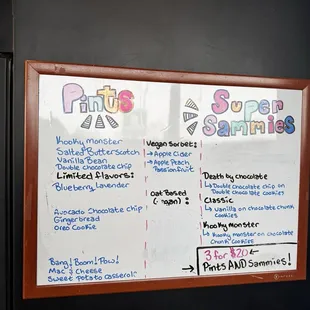 Pints
Kooky Monster
Salted Butterscotch
Vanilla Bean
Double chocolate chip
Limited flavors:
Blueberry Lavender
Avocado Chocolate chip
Gingerbread
Oreo Cookie
Bang! Boom! Pow!
Mac & Cheese
Sweet Potato Casserole
Vegan Sorbet:
→ Apple Cider
→ Apple Peach
Passionfruit
Oat Based
Super
Sammies
Death by chocolate
↳ Double chocolate chip on
Double chocolate cookies
Classic
↳ Vanilla on chocolate chunk
Cookies
Kooky Monster
↳ Kooky monster on chocolate
Chunk cookies
3 for $20 ←
→ Pints AND Sammies!